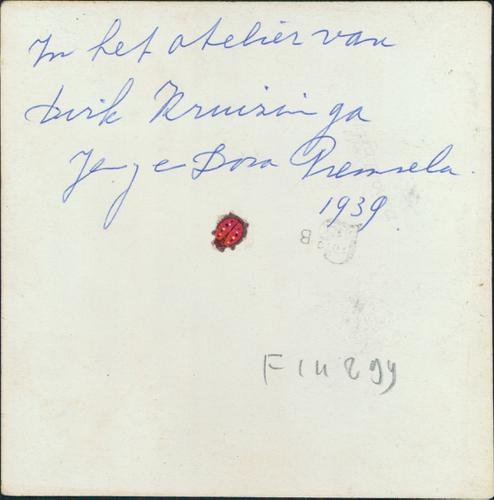 In het atelier van
Dirk Kruizinga
Jenj en Dora Premsela.
1939.
B